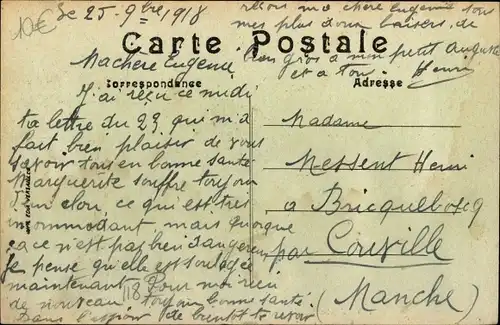 10€
Le 25-9bre 1918
Carte Postale
Correspondance
Adresse
Ma chere Eugenie
J'ai reçu ce midi
ta lettre du 23 qui m'a
fait bien plaisir de vous
savoir tous en bonne santé
Marguerite souffre toujours
d'un clou, ce qui est très
incommodant mais quoique
ça ce n'est pas bien dangereux
Je pense qu'elle est soulagée
maintenant. Pour moi rien
de nouveau toujours bonne santé.
Dans l'espoir de bientôt te revoir
reçois ma chere Eugenie tous
mes plus doux baisers, de
gros a mon petit Auguste
et a toi. Henri
18
Madame
Messent Henri
a Bricquebosq
par Couville
(Manche)